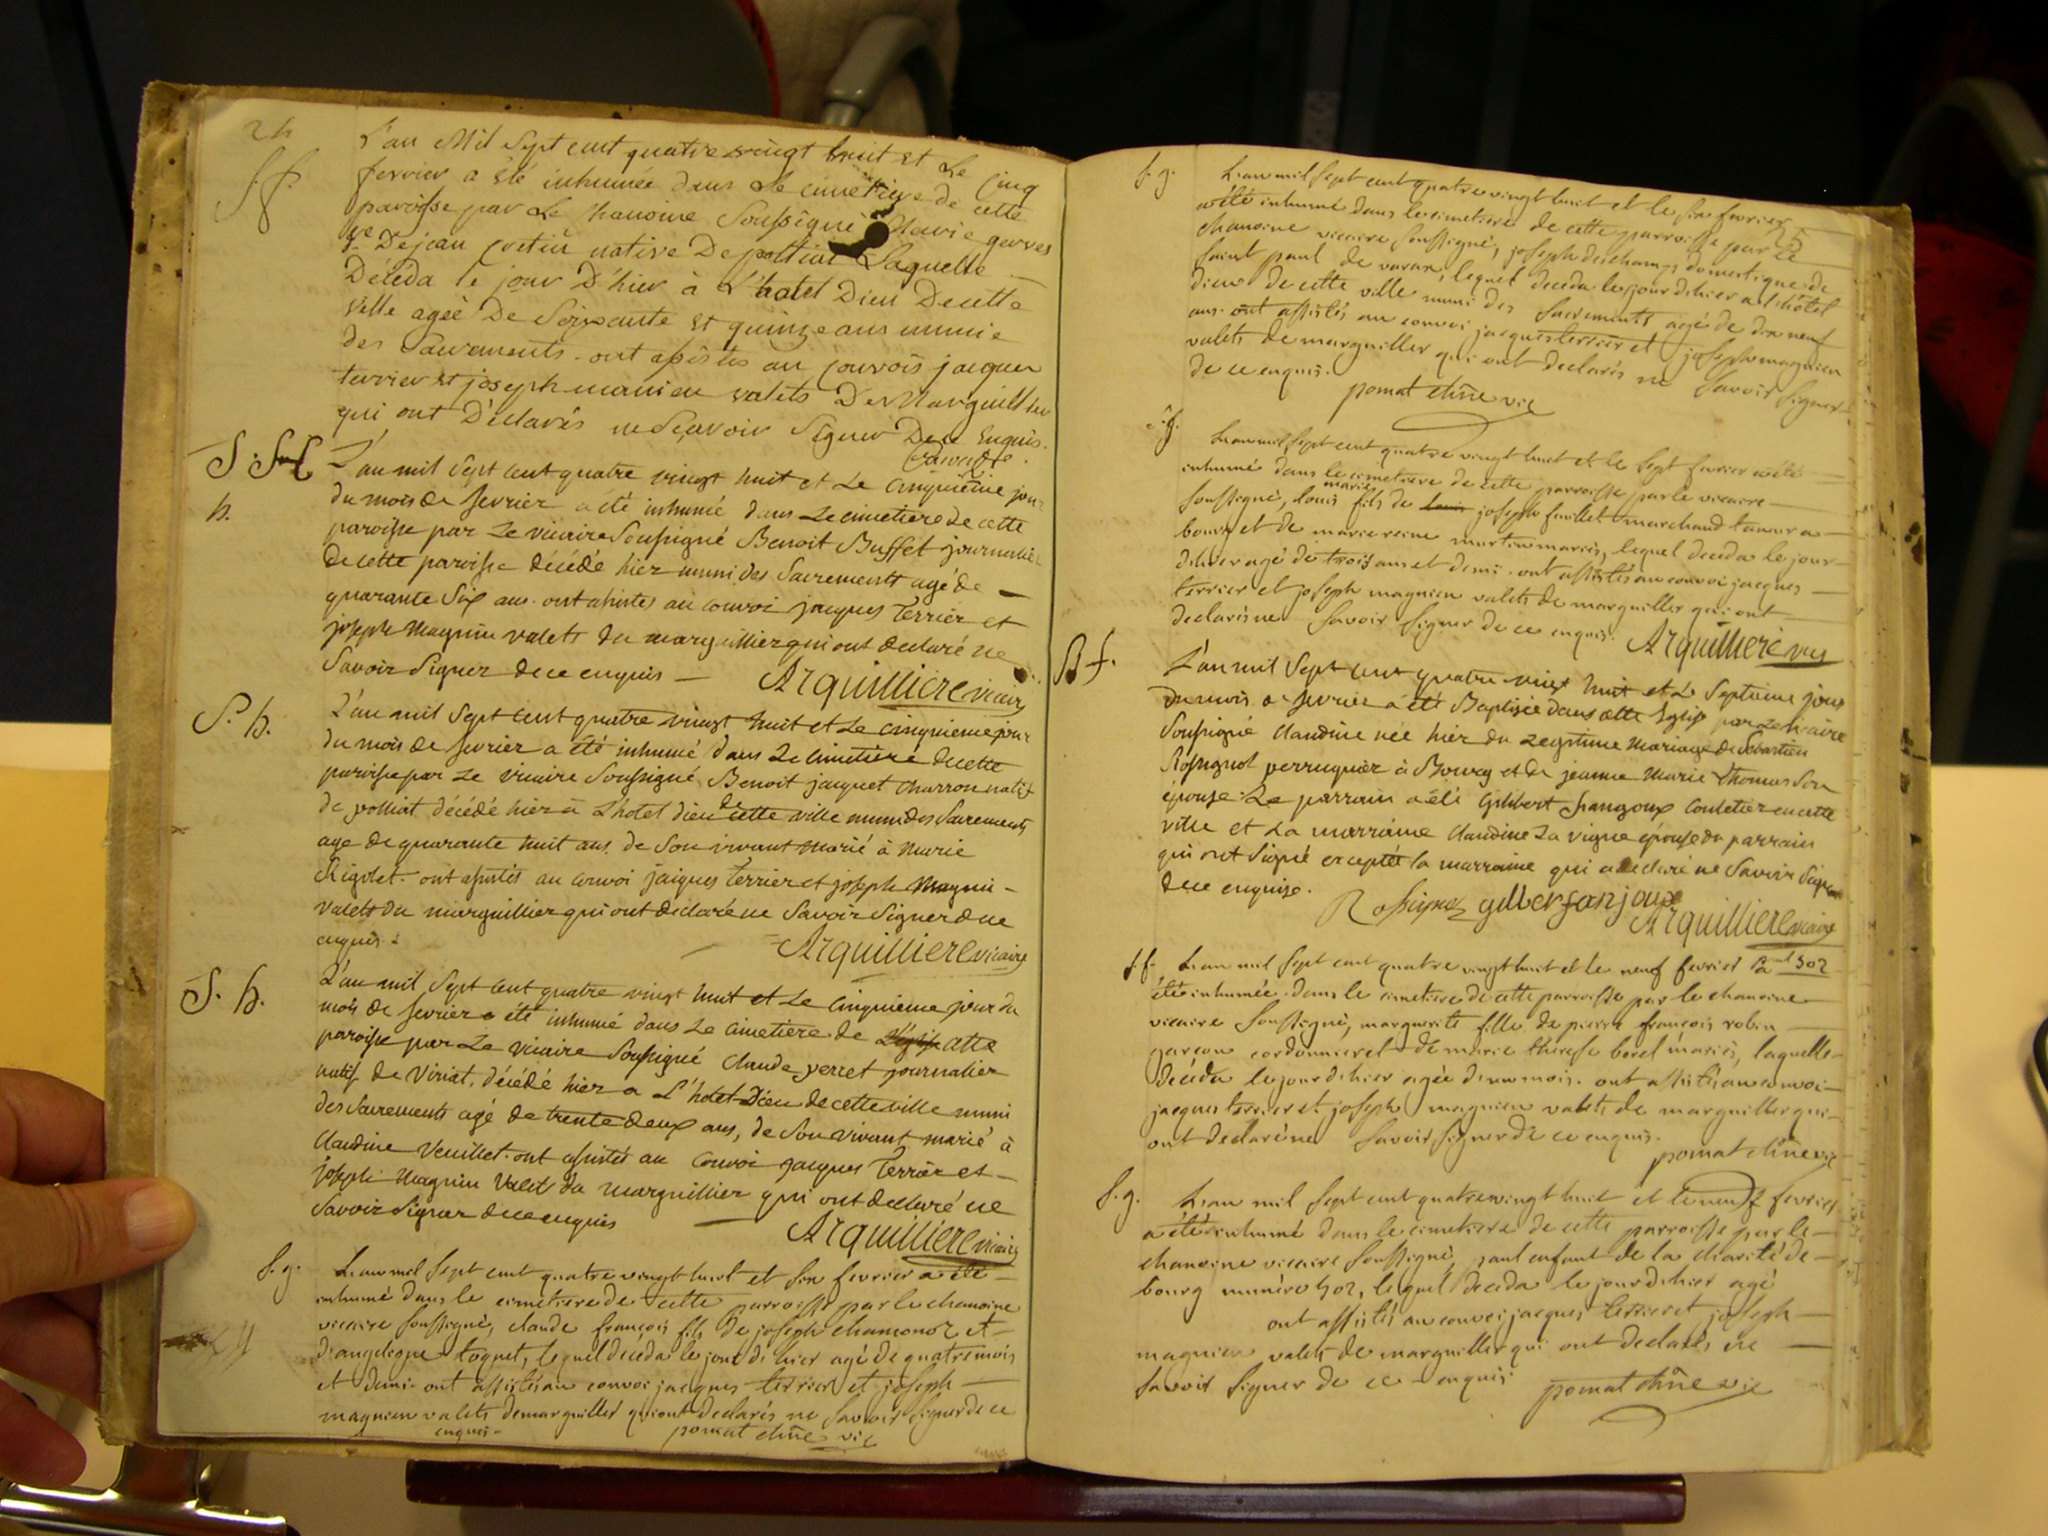 24
s. f.
L'an Mil Sept cent quatre vingt huit et Le cinq
fevrier a été inhumée dans Le cimetiere de cette
paroisse par Le chanoine Soussigné Marie gerves
De jean native De Laquelle
Décéda le jour D'hier à L'hotel Dieu De cette
ville ageé De Soixante et quinze ans munie
des Sacrements. ont assistés au jacques
terrier et joseph manien valets De Marguillier
qui ont Déclarés ne Sçavoir Signer De ce Enquis.
S.
h.
L'an mil Sept cent quatre vingt huit et Le cinquieme jour
du mois de fevrier a été inhumé dans Le cimetiere de cette
paroisse par Le vicaire Soussigné Benoit Buffet journalier
de cette paroisse décédé hier muni des Sacrements agé de
quarante Six ans. ont assistés au convoi jacques Terrier et
joseph Magnin valets du marguillier qui ont declaré ne
Savoir Signer de ce enquis Arquilliere vicaire
S. h.
L'an mil Sept cent quatre vingt huit et Le cinquieme jour
du mois de fevrier a été inhumé dans Le cimetiere de cette
paroisse par Le vicaire Soussigné Benoit jacquet charron natif
de polliat décédé hier à L'hotel dieu de cette ville muni des Sacrements
age de quarante huit ans. de Son vivant marié à Marie
Rigolet. ont assistés au convoi jacques Terrier et joseph Magnin
valets du marguillier qui ont declaré ne Savoir Signer de ce
enquis. Arquilliere vicaire
S. h.
L'an mil Sept cent quatre vingt huit et Le cinquieme jour du
mois de fevrier a été inhumé dans Le cimetiere de cette
paroisse par Le vicaire Soussigné Claude perret journalier
natif de Viriat. décédé hier a L'hotel Dieu de cette ville muni
des Sacrements agé de trente deux ans, de Son vivant marié à
Claudine Veuillet. ont assistés au Convoi jacques Terrier et
joseph Magnin Valets du Marguillier qui ont declaré ne
Savoir Signer de ce enquis Arquilliere vicaire
s. g.
L'an mil sept cent quatre vingt huit et six fevrier a été
inhumé dans le cimetiere de cette parroisse par le chanoine
vicaire soussigné, claude françois fils de joseph chamonoz et
toquet, lequel déceda le jour d'hier agé de quatre mois
et demi. ont assistés au convoi jacques terrier et joseph
magnien valets de marguiller qui ont declarés ne savoir signer de ce
enquis. pomat chne vic
s. g.
L'an mil sept cent quatre vingt huit et le six fevrier
a été inhumé dans le cimetiere de cette parroisse par le
chanoine vicaire soussigné, joseph deschamps domestique de
saint paul de varax, lequel deceda le jour d'hier a l'hôtel
dieu de cette ville muni des sacrements agé de dix neuf
ans. ont assistés au convoi jacques terrier et joseph magnien
valets de marguiller qui ont declarés ne savoir signer
de ce enquis. pomat chne vic
s. g.
L'an mil sept cent quatre vingt huit et le sept fevrier a été
inhumé dans le cimetiere de cette parroisse par le vicaire
soussigné, louis marie fils de louis joseph marchand taneur a
bourg et de marie reine martin mariés, lequel deceda le jour
d'hier agé de trois ans et demi. ont assistés au convoi jacques
terrier et joseph magnien valets de marguiller qui ont
declarés ne savoir signer de ce enquis. Arquilliere vic
B f.
L'an mil Sept cent quatre vingt huit et Le Septieme jour
du mois de fevrier a été Baptisée dans cette Eglise par Le vicaire
Soussigné Claudine née hier du Legitime Mariage de Sebastien
Rossignol perruquier à Bourg et de jeanne Marie Thomas Son
épouse. Le parrain a été Gilibert franjoux Coutelier en cette
ville et La marraine Claudine La vigne épouse du parrain
qui ont Signé excepté la marraine qui a declaré ne Savoir Signer
de ce enquise.
Rossignol gilber fanjoux
Arquilliere vicaire
s. f.
L'an mil sept cent quatre vingt huit et le neuf fevrier a
été inhumée dans le cimetiere de cette parroisse par le chanoine
vicaire soussigné, marguerite fille de pierre françois robin
garçon cordonnier et de marie therese borel mariés, laquelle
décéda le jour d'hier agée d'un mois. ont assistés au convoi
jacques terrier et joseph magnien valets de marguiller qui
ont declaré ne savoir signer de ce enquis.
pomat chne vic
s. g.
L'an mil sept cent quatre vingt huit et le neuf fevrier
a été inhumé dans le cimetiere de cette parroisse par le
chanoine vicaire soussigné, paul enfant de la charité de
bourg numéro 502, lequel deceda le jour d'hier agé
ont assistés au convoi jacques terrier et joseph
magnien valets de marguiller qui ont declarés ne
savoir signer de ce enquis. pomat chne vic